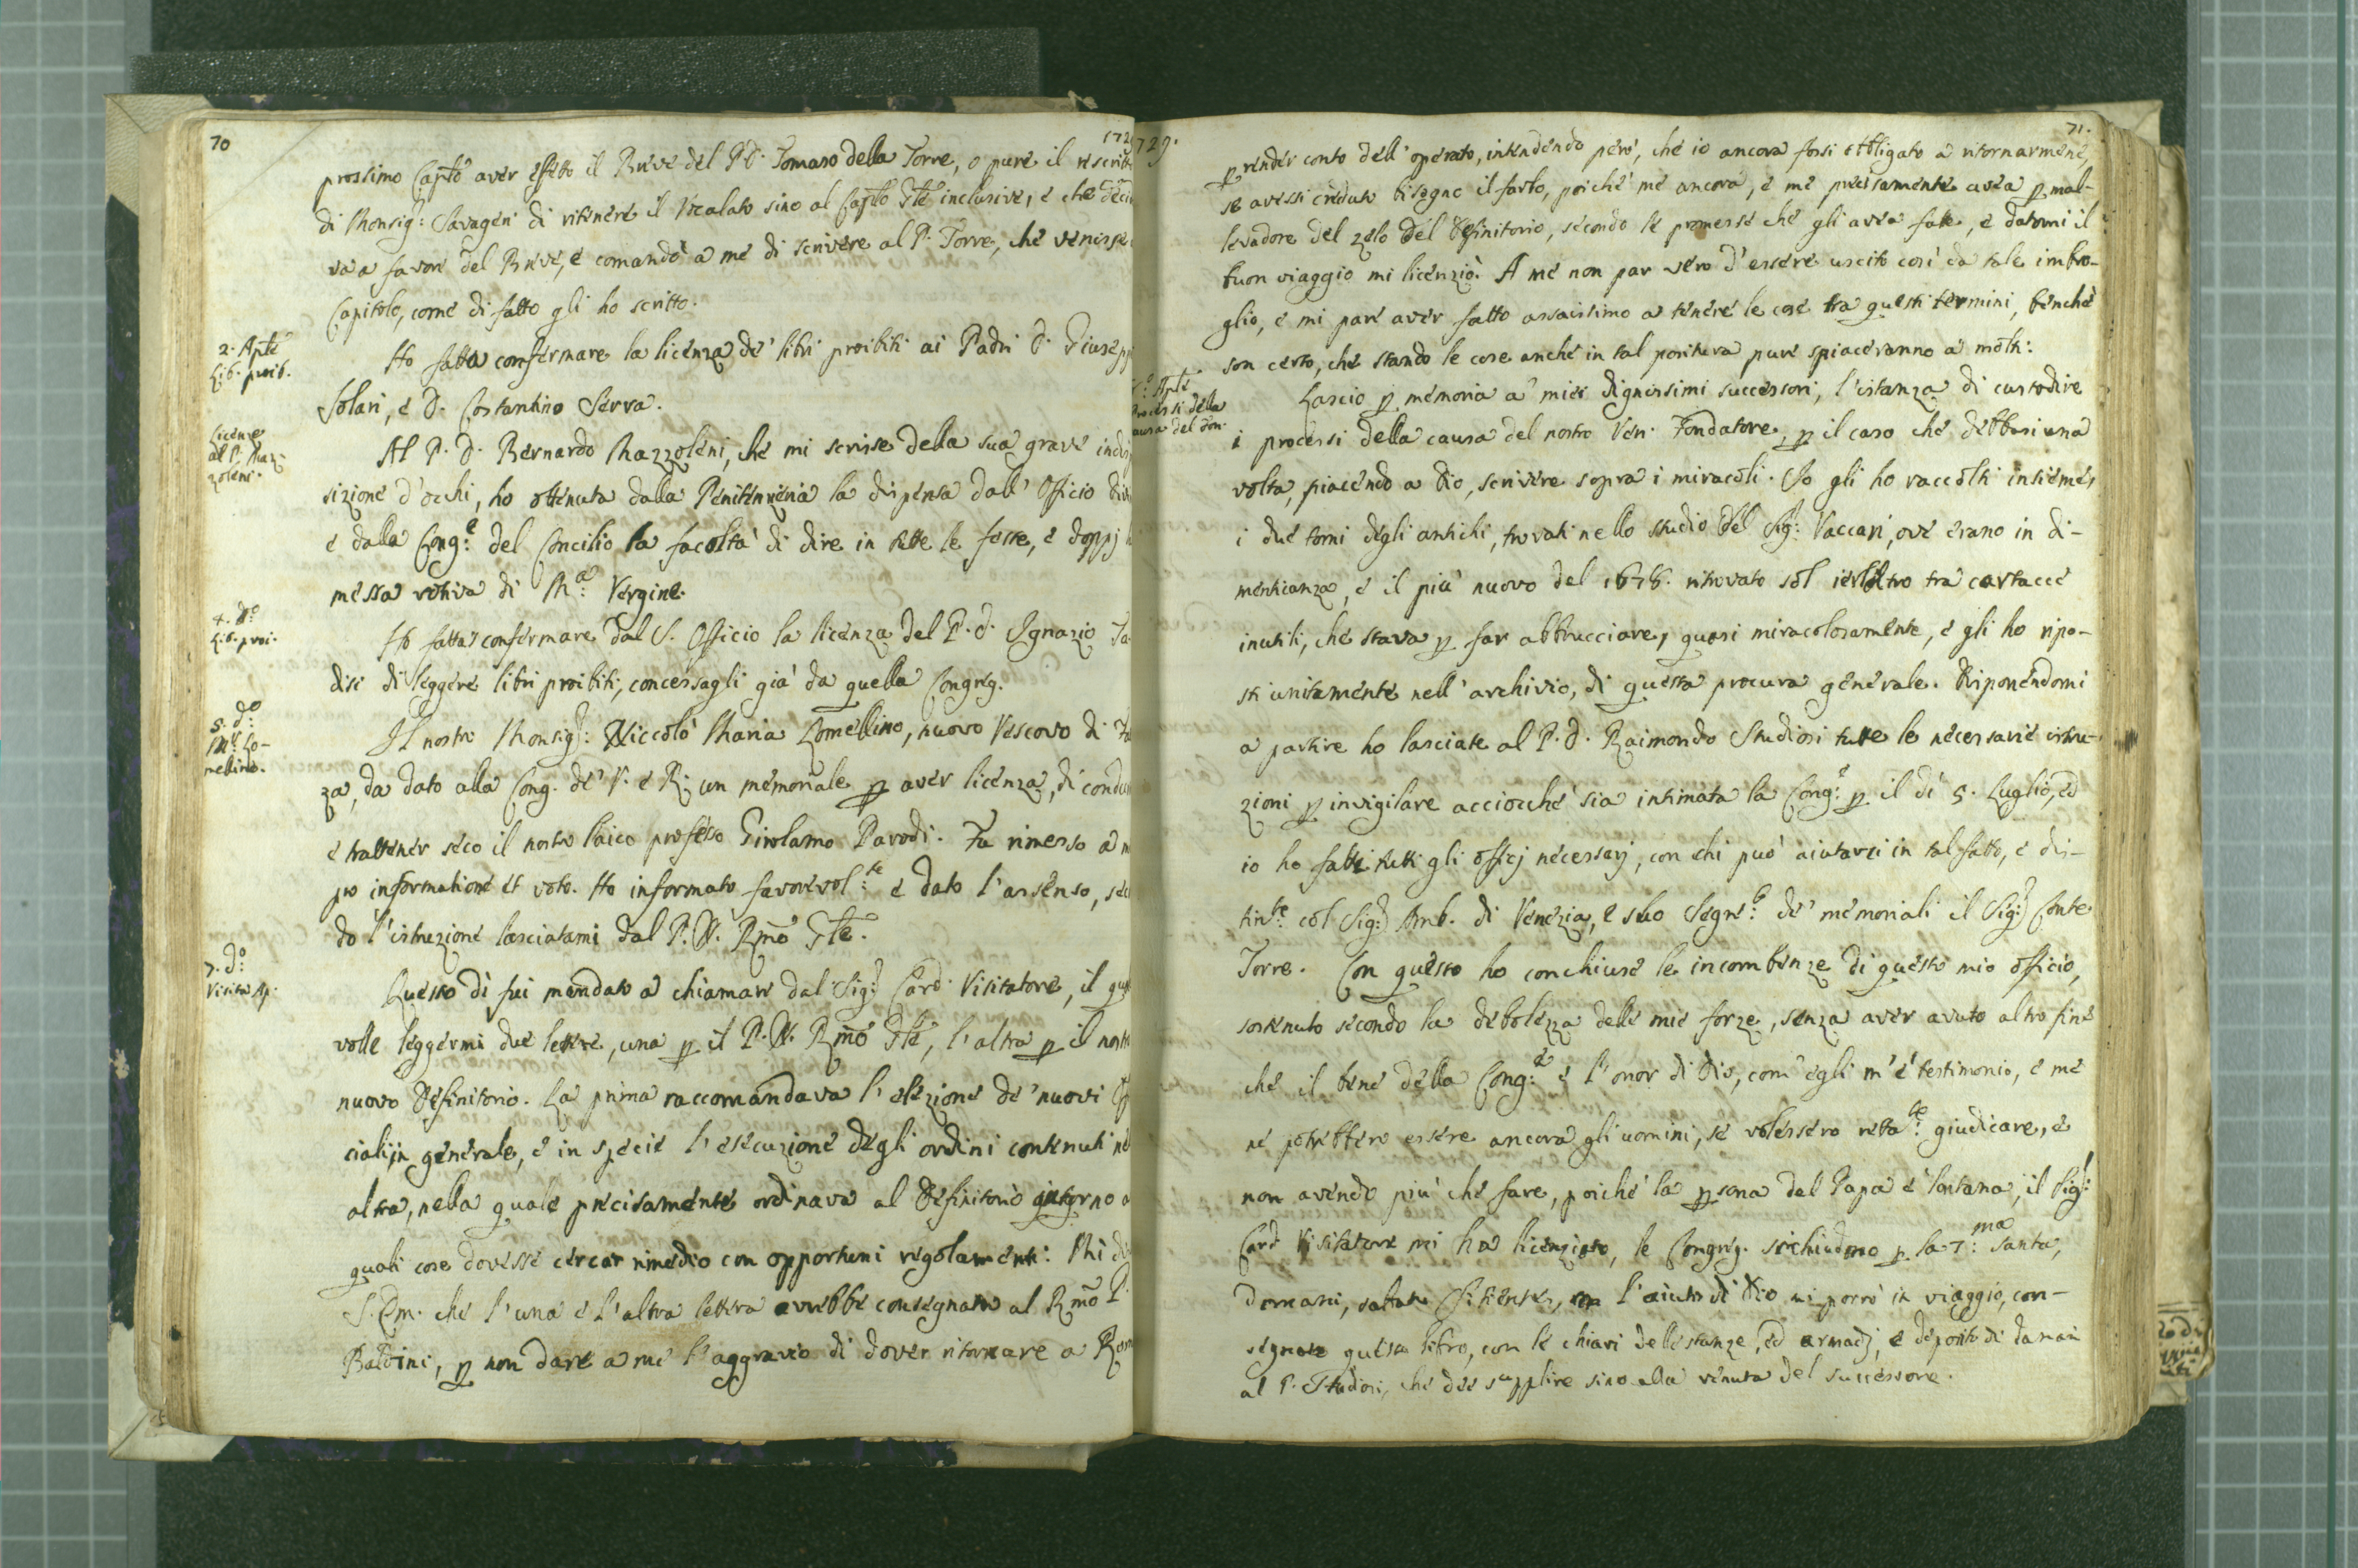 70
172
prossimo Cap͠to aver effetto il Breve del P. D. Tomaso della Torre, o pure il rescritt
di Monsig:r Savageri di ritenere il Vocalato sino al Cap͠to G͠le inclusive, e che deci
va a favore del Breve, e comandò a me di scrivere al P. Torre, che venisse
Capitolo, come di fatto gli ho scritto.
2. Ap͠le
Lib. proib.
Ho fatta confermare la licenza de' libri proibiti ai Padri D. Giusepp
Solari, e D. Costantino Serra.
Licenze
al P. Maz-
zoleni.
Al P. D. Bernardo Mazzoleni, che mi scrisse della sua grave indi
sizione d'occhi, ho ottenuta dalla Penitenzieria la dispensa dall' Officio div
e dalla Cong:e del Concilio la facoltà di dire in tutte le feste, e doppj l
messa votiva di M:a Vergine.
4. d:o
Lib. proi.
Ho fatta confermare dal S. Officio la licenza del P. D. Ignazio
disi di leggere libri proibiti, concessagli già da quella Congreg.
5. d:o
M:r Lo-
mellino.
Il nostro Monsig:r Niccolò Maria Lomellino, nuovo Vescovo di Fa
za, da dato alla Cong. de' V. e R. un memoriale p aver licenza, di condu
e trattener seco il nostro laico professo Girolamo Parodi. Fu rimesso a m
pro informatione et voto. Ho informato favorevol:te e dato l'assenso, seco
do l'istruzione lasciatami dal P. N. R͠mo G͠le.
7. d:o
Visita Ap.
Questo dì fui mandato a chiamare dal Sig:r Card. Visitatore, il qua
volle leggermi due lettere, una p il P. N. R͠mo G͠le, l'altra p il nostr
nuovo Definitorio. La prima raccomandava l'elezione de' nuovi Off
ciali in generale, e in specie l'esecuzione degli ordini contenuti ne
altra, nella quale precisamente ordinava al Definitorio intorno a
quali cose dovesse cercar rimedio con opportuni regolamenti. Mi di
S. Em. che l'una e l'altra lettera avrebbe consegnate al R͠mo P.
Baldini, p non dare a me l'aggravio di dover ritornare a Rom
729.
71.
p render conto dell'operato, intendendo però, che io ancora fossi obbligato a ritornarmene,
se avessi creduto bisogno il farlo, poiché me ancora, e me precisamente avea p mal-
levadore del zelo del Definitorio, secondo le promesse che gli avea fatte, e datomi il
buon viaggio mi licenziò. A me non par vero d'essere uscito così da tale imbro-
glio, e mi pare aver fatto assaissimo a tenere le cose tra questi termini, benchè
son certo, che stando le cose anche in tal positura pure spiaceranno a molti.
Ap͠le
Processi della
causa del Fon.
Lascio p memoria a' miei dignissimi successori, l'istanza di custodire
i processi della causa del nostro Ven. Fondatore, p il caso che debbasi una
volta, piacendo a Dio, scrivere sopra i miracoli. Io gli ho raccolti insieme,
i due tomi degli antichi, trovati nello studio del Sig:r Vaccari, ove erano in di-
menticanza, e il più nuovo del 1678. ritrovato sol ierlaltro tra cartacce
inutili, che stava p far abbrucciare, quasi miracolosamente, e gli ho ripo-
sti unitamente nell'archivio, di questa procura generale. Disponendomi
a partire ho lasciate al P. D. Raimondo Studiosi tutte le necessarie istru-
zioni p invigilare acciocché sia intimata la Cong:e p il dì 5. Luglio, ed
io ho fatti tutti gli officj necessarj, con chi può aiutarci in tal fatto, e dis-
tin:te col Sig:r Amb. di Venezia, e suo Segre:o de' memoriali il Sig:r Conte
Torre. Con questo ho conchiuse le incombenze di questo mio officio,
sostenuto secondo la debolezza delle mie forze, senza aver avuto altro fine
che il bene della Cong:e e l'onor di Dio, com'egli m'è testimonio, e me
ne potrebbero essere ancora gli uomini, se volessero retta:te giudicare, e
non avendo più che fare, poiché la psona del Papa è lontana, il Sig:r
Card Visitatore mi ha licenziato, le Congreg. si chiudono p la 7:ma Santa,
domani, sabato Sitientes, con l'aiuto di Dio mi porrò in viaggio, con-
segnate questo libro, con le chiavi delle stanze, ed armadj, e deposito di danari
al P. Studiosi, che dee supplire sino alla venuta del successore.